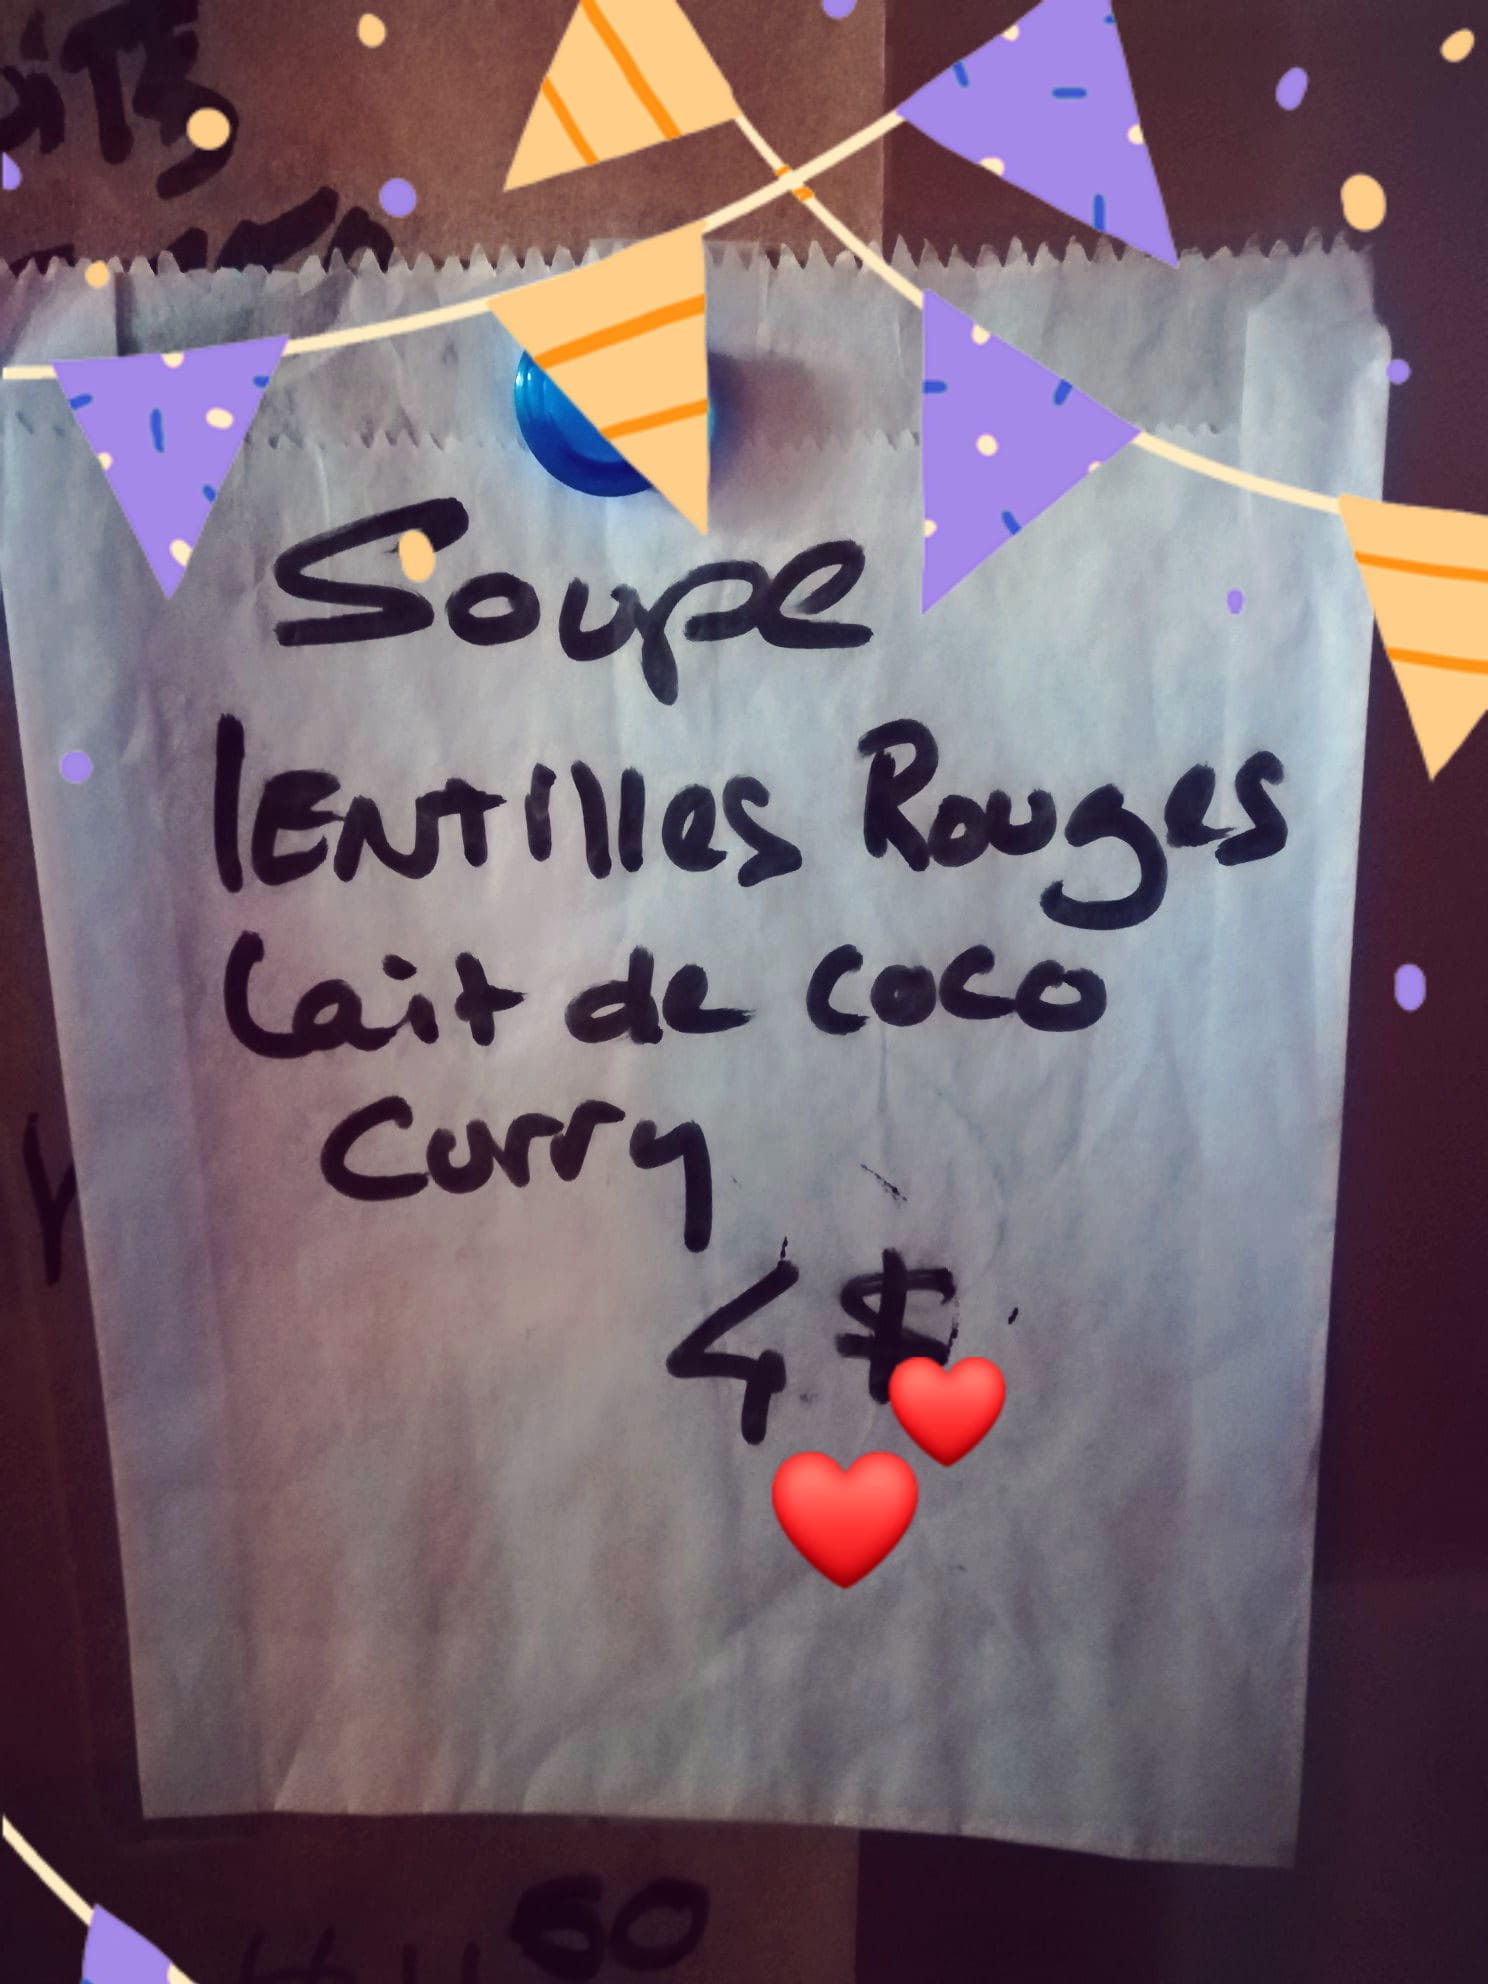 Soupe
lENTIlles Rouges
Lait de coco
Curry
4 $
60